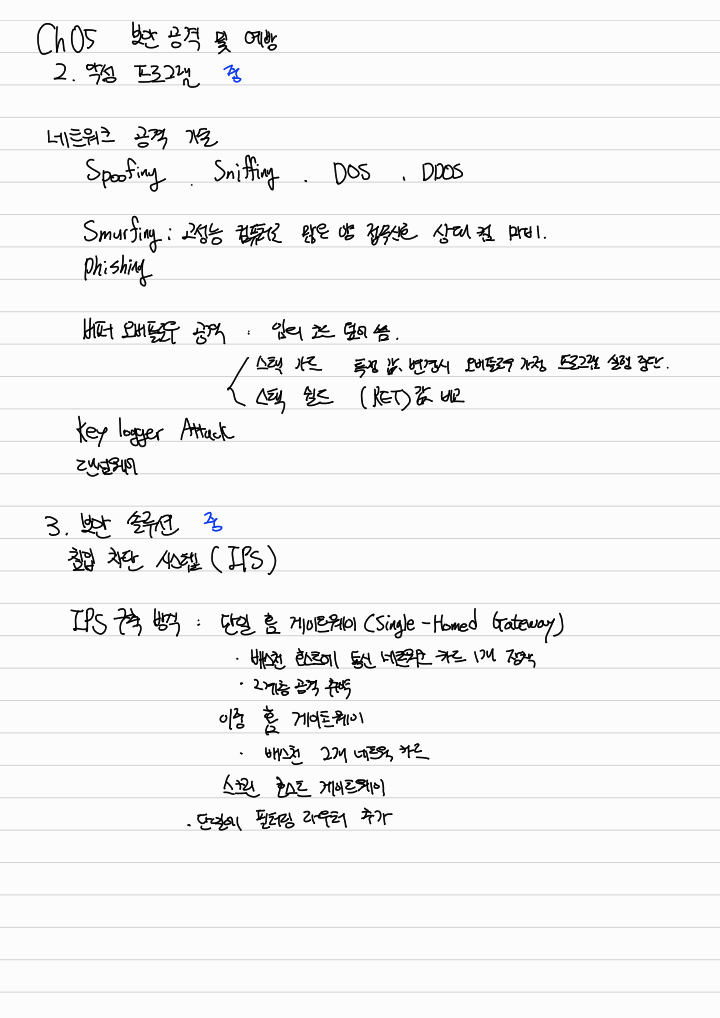 Ch05 보안 공격 및 예방
2. 악성 프로그램 중
네트워크 공격 기술
Spoofing . Sniffing . DOS . DDOS
Smurfing : 고성능 컴퓨터로 많은 양 접속신호 상대 컴 마비.
phishing
버퍼 오버플로우 공격 : 입력 코드 덮어 씀.
스택 가드 특정 값, 변경시 오버플로우 가정 프로그램 실행 중단.
스택 쉴드 (RET)값 비교
Key logger Attack
랜섬웨어
3. 보안 솔루션 중
침입 차단 시스템 (IPS)
IPS 구축 방식 : 단일 홈 게이트웨이 (Single-Homed Gateway)
· 배스천 호스트에 통신 네트워크 카드 1개 장착
· 2계층 공격 취약
이중 홈 게이트웨이
· 배스천 2개 네트웍 카드
스크린 호스트 게이트웨이
· 단일에 필터링 라우터 추가